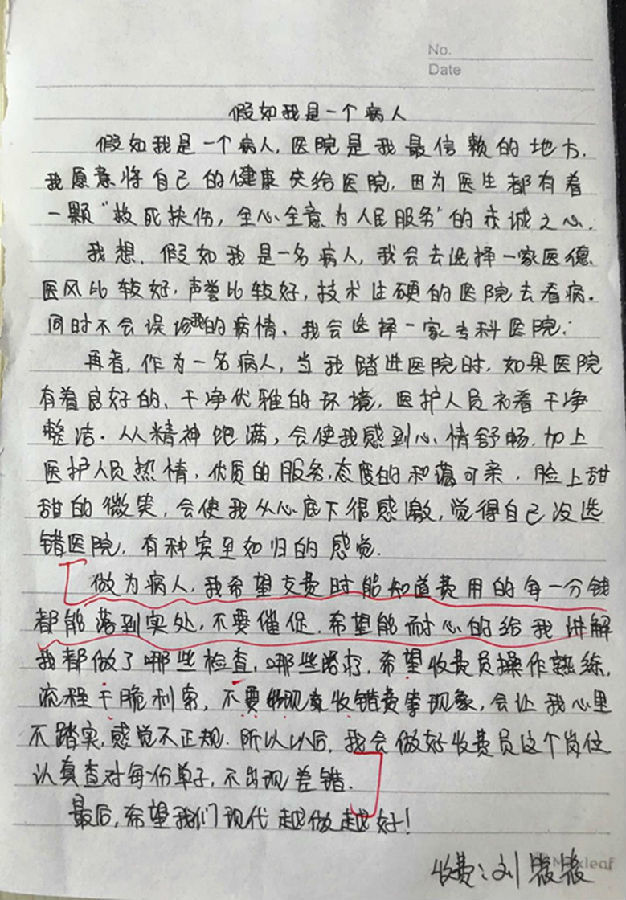 No.
Date
假如我是一个病人
假如我是一个病人,医院是我最信赖的地方,
我愿意将自己的健康交给医院,因为医生都有着
一颗“救死扶伤,全心全意为人民服务”的赤诚之心.
我想,假如我是一名病人,我会去选择一家医德
医风比较好,声誉比较好,技术过硬的医院去看病.
同时不会误诊我的病情、我会选择一家专科医院.
再者,作为一名病人,当我踏进医院时,如果医院
有着良好的、干净优雅的环境,医护人员衣着干净
整洁.从精神饱满,会使我感到心情舒畅,加上
医护人员热情,优质的服务,态度的和蔼可亲,脸上甜
甜的微笑,会使我从心底下很感激,觉得自己没选
错医院,有种宾至如归的感觉.
做为病人,我希望交费时能知道费用的每一分钱
都能落到实处,不要催促.希望能耐心的给我讲解
我都做了哪些检查,哪些治疗.希望收费员操作熟练,
流程干脆利索,不要出现收错费等现象,会让我心里
不踏实,感觉不正规.所以以后,我会做好收费员这个岗位
认真查对每份单子,不出现差错.
最后,希望我们现代越做越好!
收费:刘